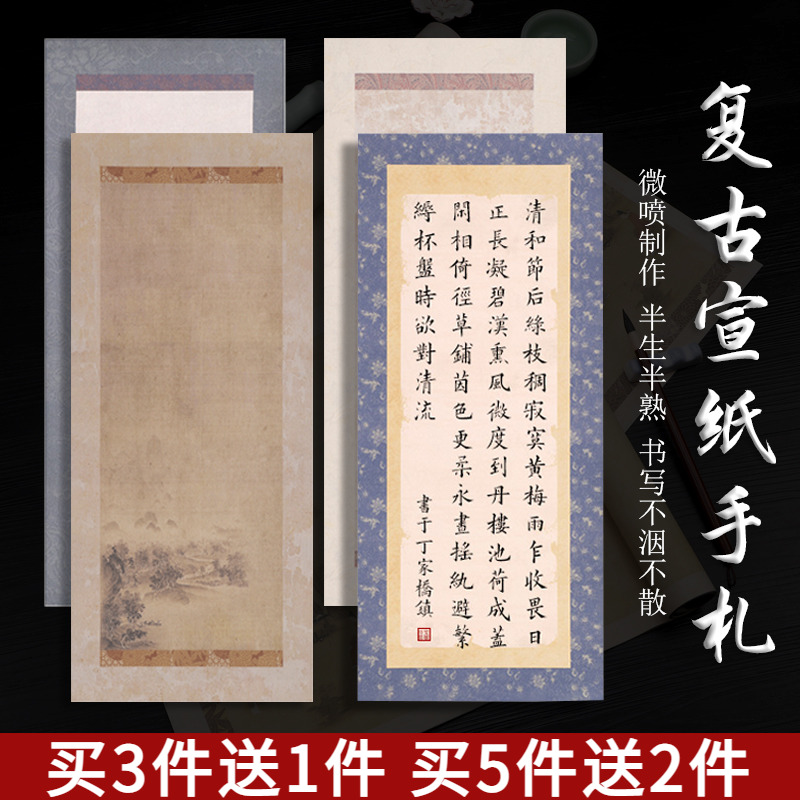 复古宣纸手札
微喷制作 半生半熟 书写不洇不散
清和節后綠枝稠寂寞黃梅雨乍收畏日
正長凝碧漢熏風微度到丹樓池荷成蓋
閒相倚徑草鋪茵色更柔永晝搖紈避繁
縟杯盤時欲對清流
書于丁家橋鎮
买3件送1件 买5件送2件